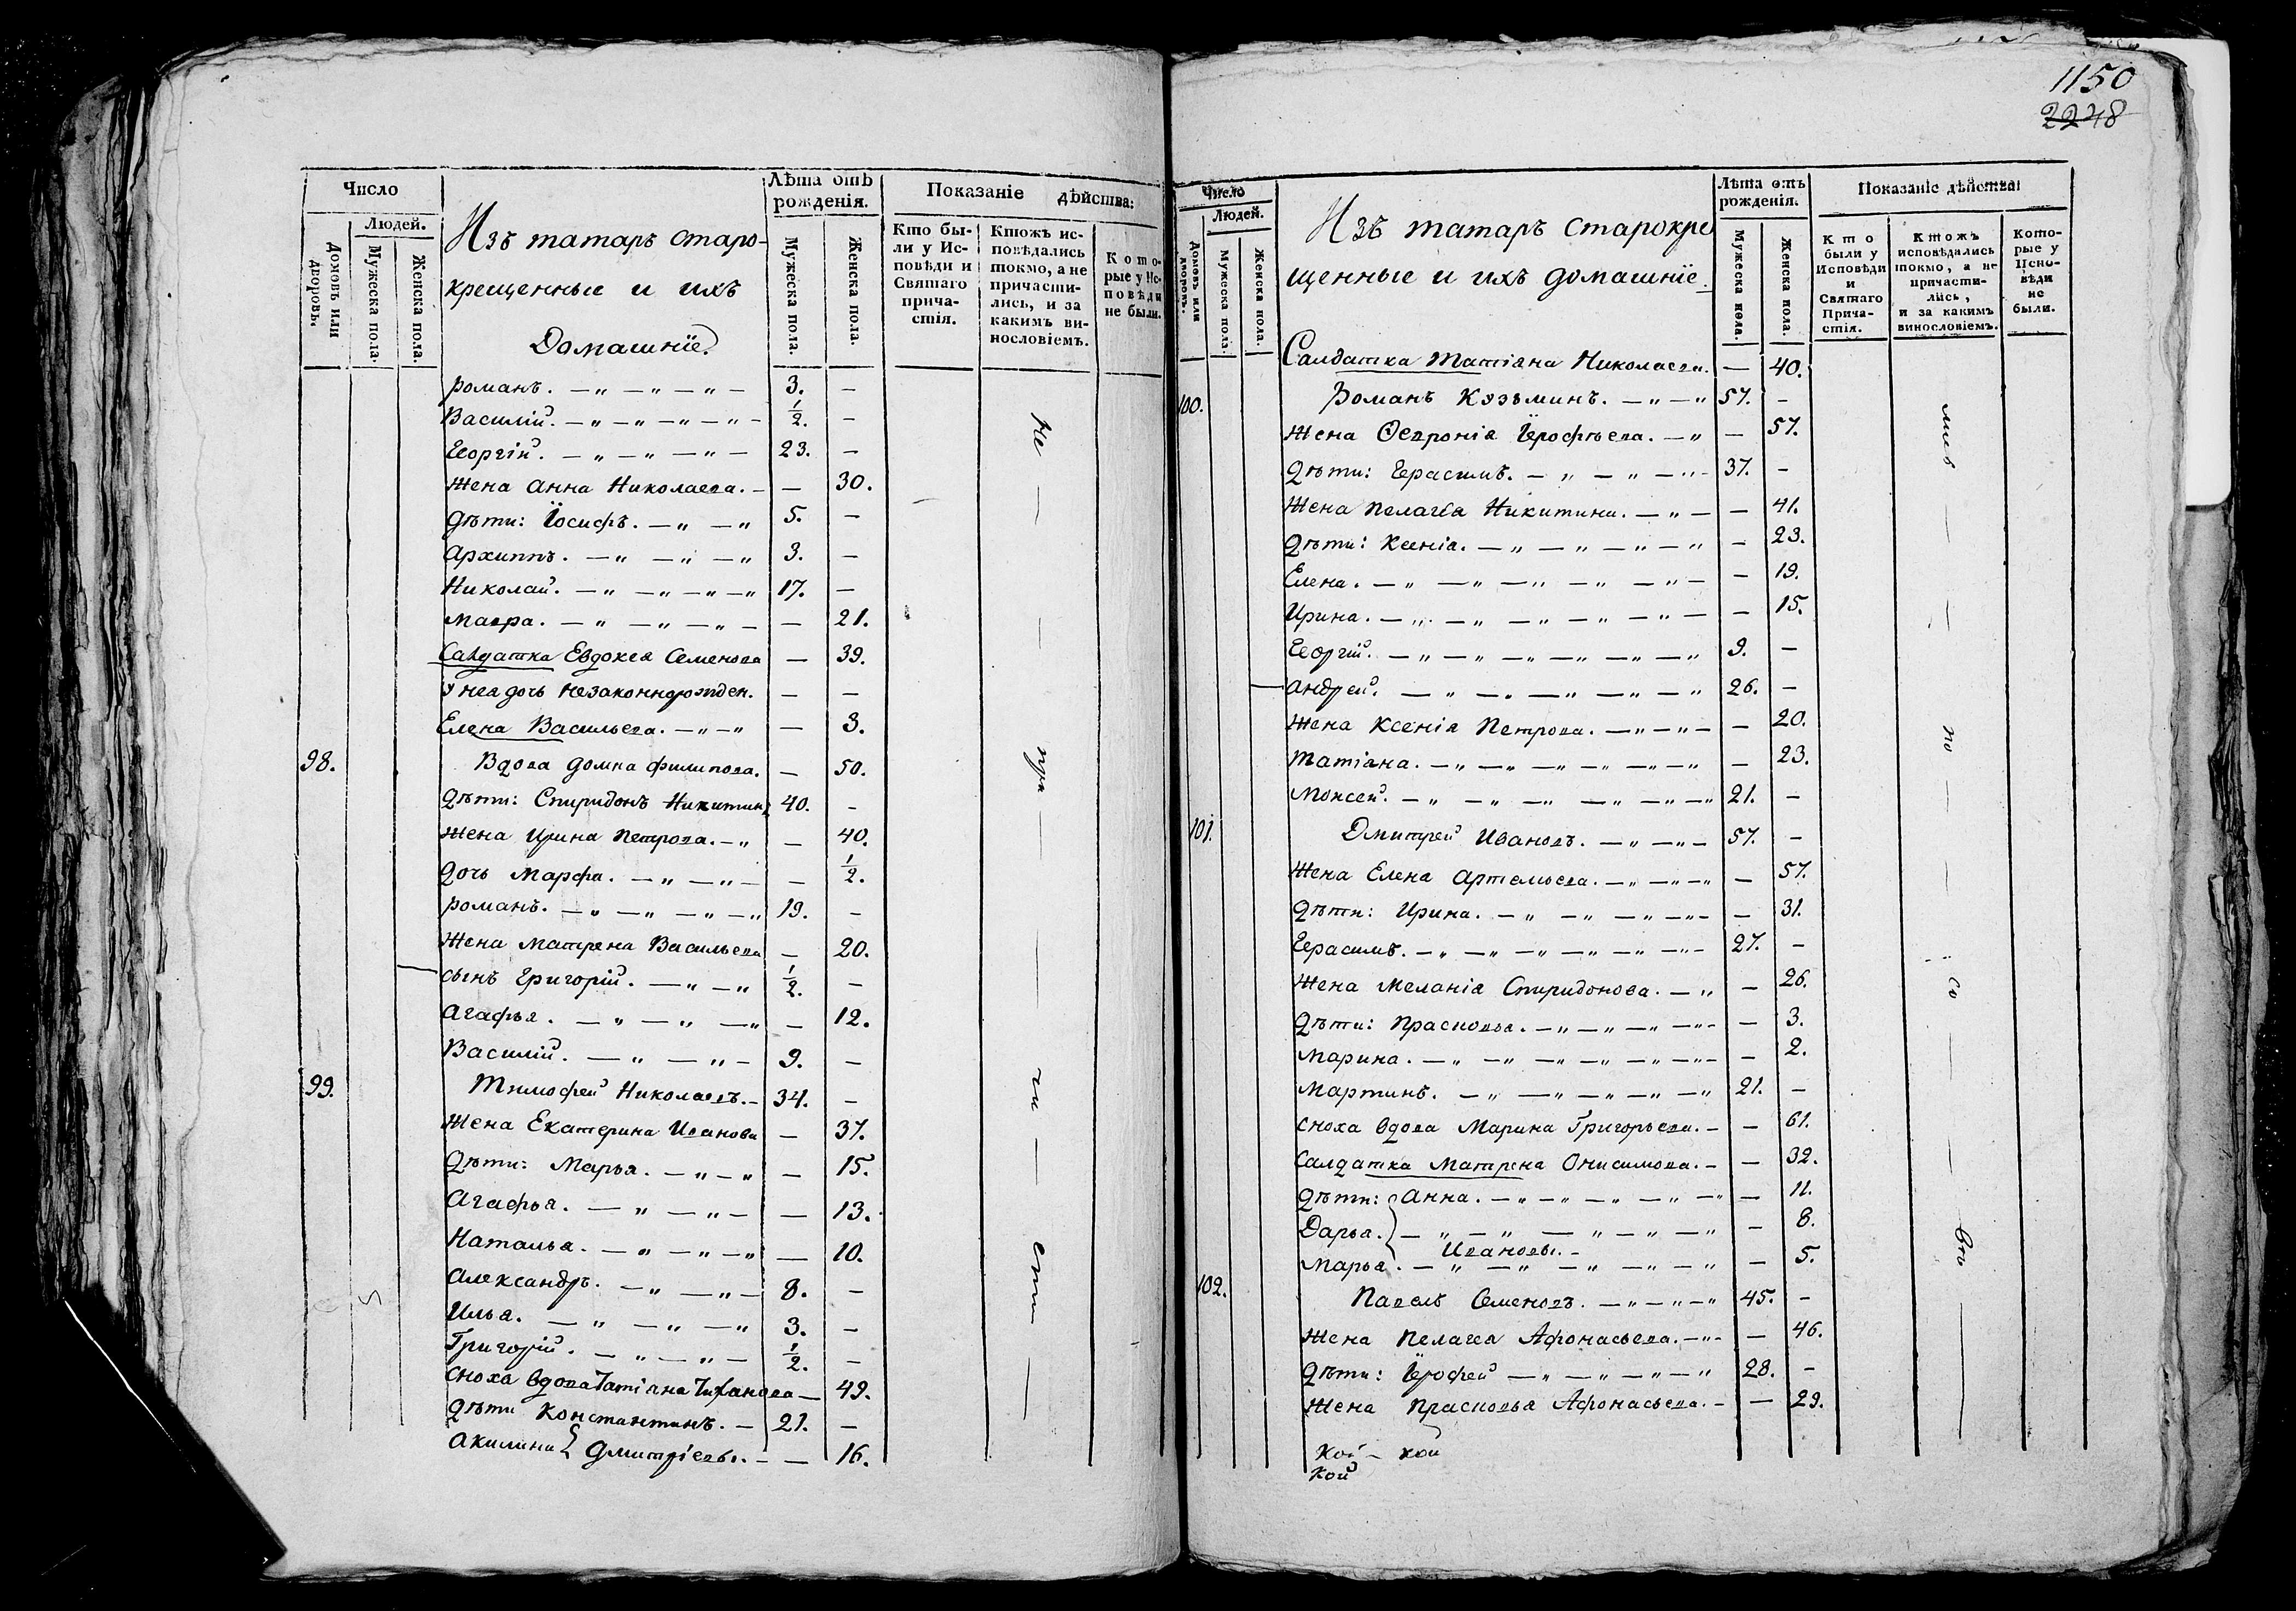 Число
Людей.
Домовъ или дворовъ.
Мужеска пола.
Женска пола.
Изъ татаръ старо-
крещенные и ихъ
Домашнїе.
Лѣта отъ рожденія.
Мужеска пола.
Женска пола.
Показаніе дѣйства:
Кто бы-
ли у Ис-
повѣди и
Святаго
прича-
стія.
Ктожъ ис-
повѣдались
токмо, а не
причасти-
лись, и за
какимъ ви-
нословіемъ.
Кото-
рые у Ис-
повѣди
не были.
романъ. — „ — „ — „ — 3. —
Василій. — „ — „ — „ — „ — 1/2. —
Георгій. — „ — „ — „ — 23. —
жена анна Николаева. — — 30.
дѣти: Іосифъ. — „ — „ 5. —
архиппъ. — „ — „ — „ 3. —
Николай. — „ — „ — „ — „ 17. —
мавра. — „ — „ — „ — — 21.
Салдатка Евдокея Семенова — 39.
у нея дочь незаконнорожден. — —
Елена Васильева. — „ — „ — 3.
98. Вдова домна филипова. — 50.
дѣти: Спиридонъ Никитинъ 40. —
жена Ирина петрова. — „ — 40.
дочь Марфа. — „ — „ — — 1/2.
романъ. — „ — „ — „ — „ 19. —
жена матрена Васильева — 20.
сынъ Григорій. — „ — „ 1/2. —
агафья. — „ — „ — „ — 12.
Василій. — „ — „ — 9. —
99. Тимофей Николаевъ. — 34. —
жена Екатерина Иванова — 37.
дѣти: Марья. — „ — „ — 15.
агафья. — „ — „ — — 13.
Наталья. — „ — „ — „ — 10.
александръ. — „ — „ — 8. —
Илья. — „ — „ — „ 3. —
Григорій. — „ — „ — 1/2. —
сноха вдова Татіана Тиханова — 49.
дѣти Константинъ. — 21. —
акилина } дмитріевы. — — 16.
не — — при — — ча — сти —
1150
2248
Число
Людей.
Домовъ или дворовъ.
Мужеска пола.
Женска пола.
Изъ татаръ старокре
щенные и ихъ домашнїе.
Лѣта отъ рожденія.
Мужеска пола.
Женска пола.
Показаніе дѣйства
Кто
были у
Исповѣди
и
Святаго
Прича-
стія.
Ктожъ
исповѣдались
токмо, а не
причасти-
лись,
и за какимъ
винословіемъ.
Кото-
рые у
Испо-
вѣди
не
были.
Салдатка татіана Николаева. — 40.
100. Романъ Козьминъ. — „ — „ 57. —
жена Ѳеврониа Ерофѣева. — „ — 57.
дѣти: Герасимъ. — „ — „ — „ — 37. —
жена пелагея Никитина. — „ — — 41.
дѣти: Ксенія. — „ — „ — „ — „ — 23.
Елена. — „ — „ — „ — „ — „ — — 19.
Ирина. — „ — „ — „ — „ — „ — — 15.
Георгій. — „ — „ — „ — „ — „ — „ 9. —
андрей. — „ — „ — „ — „ — „ 26. —
жена Ксенія Петрова. — „ — „ — — 20.
татіана. — „ — „ — „ — „ — „ — „ — 23.
моисей. — „ — „ — „ — „ — „ — „ 21. —
101. Дмитрей Ивановъ. — „ — „ — 57. —
жена Елена артемьева. — „ — „ — „ — 57.
дѣти: Ирина. — „ — „ — „ — „ — — 31.
Герасимъ. — „ — „ — „ — „ — „ — „ — 27. —
жена меланія Спиридонова. — „ — 26.
дѣти: прасковья. — „ — „ — „ — „ — — 3.
марина. — „ — „ — „ — „ — „ — „ — — 2.
мартинъ. — „ — „ — „ — „ — „ 21. —
сноха вдова Марина Григорьева. — — 61.
салдатка матрена Онисимова. — — 32.
дѣти: анна. — „ — „ — „ — „ — „ — 11.
Дарья. } — „ — „ — „ — „ — „ — 8.
Ивановы. —
марья. — „ — „ — „ — „ — „ — 5.
102. Павелъ Семеновъ. — „ — „ — „ 45. —
жена пелагея Афонасьева. — „ — — 46.
дѣти: Ерофей — „ — „ — „ — „ 28. —
жена прасковья Афонасьева. — — 29.
лись — — по — — со — — вѣ —
кой — кой
кой